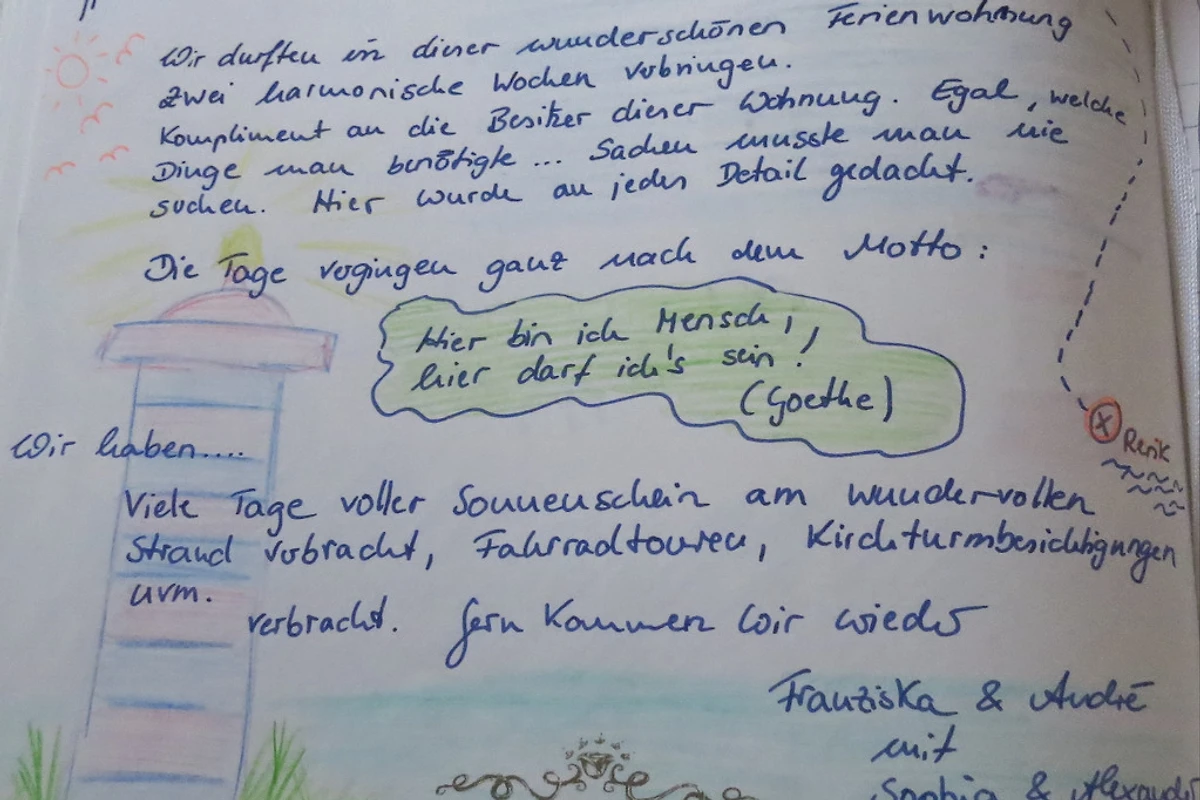 Wir durften in dieser wunderschönen Ferienwohnung
zwei harmonische Wochen verbringen.
Kompliment an die Besitzer dieser Wohnung. Egal, welche
Dinge man benötigte ... Sachen musste man nie
suchen. Hier wurde an jedes Detail gedacht.
Die Tage vergingen ganz nach dem Motto:
Hier bin ich Mensch,
hier darf ich's sein!
(Goethe)
Rerik
Wir haben....
Viele Tage voller Sonnenschein am wundervollen
Strand verbracht, Fahrradtouren, Kirchturmbesichtigungen
uvm.
verbracht. Gern kommen wir wieder
Franziska & André
mit
Sophia &